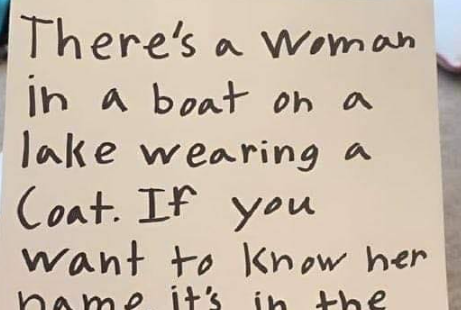 There's a woman
in a boat on a
lake wearing a
Coat. If you
want to know her
name it's in the